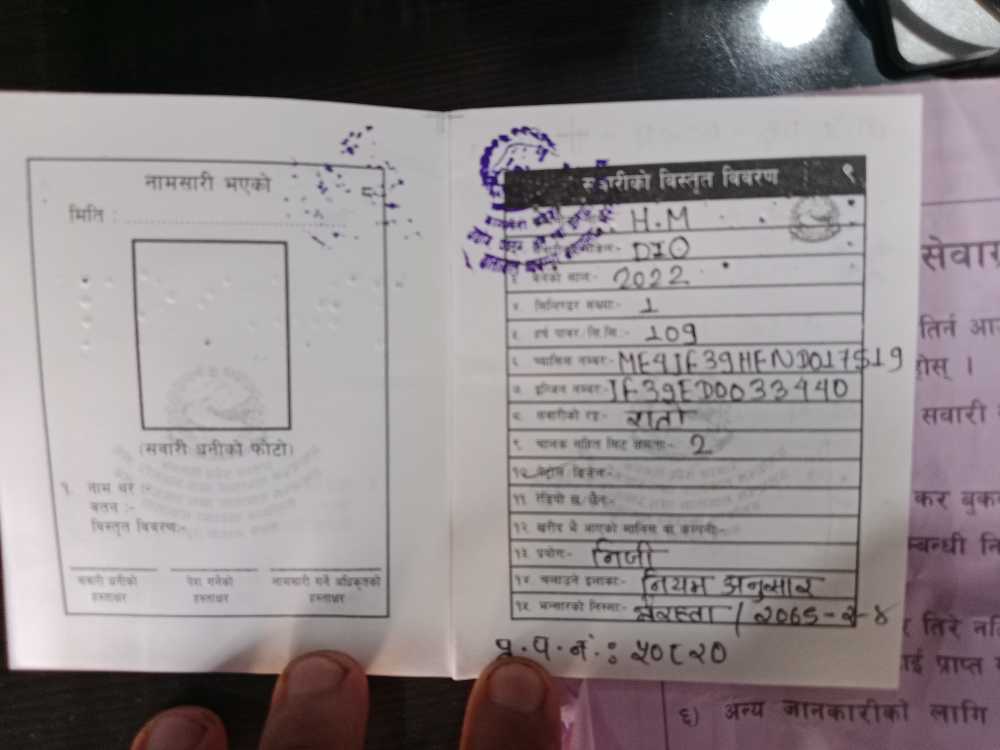 नामसारी भएको
मिति :
(सवारी धनीको फोटो)
१. नाम थर :-
वतन :-
विस्तृत विवरण:-
सवारी धनीको हस्ताक्षर
पेश गर्नेको हस्ताक्षर
नामसारी गर्ने अधिकृतको हस्ताक्षर
सवारीको विस्तृत विवरण ९
H.M
DIO
2022
४. सिलिण्डर संख्या:- 1
५. हर्ष पावर/सि.सि.:- 109
६. च्यासिस नम्बर:- ME4JF39HFND017519
७. इन्जिन नम्बर:- JF39ED0033440
८. सवारीको रङ्ग:- रातो
९. चालक सहित सिट क्षमता:- 2
१०. पेट्रोल डिजेल:-
११. रेडियो छ/छैन:-
१२. खरीद भै आएको मालिक वा कम्पनी:-
१३. प्रयोग:- निजी
१४. चलाउने इलाका:- नियम अनुसार
१५. भन्सारको निस्सा:- / 2065-2-४
प्र.प.नं.: ५०८२०
सेवाग्र
तिर्न आ
होस् ।
सवारी
कर बुक
म्बन्धी नि
तिरे नति
ाई प्राप्त
६) अन्य जानकारीको लागि